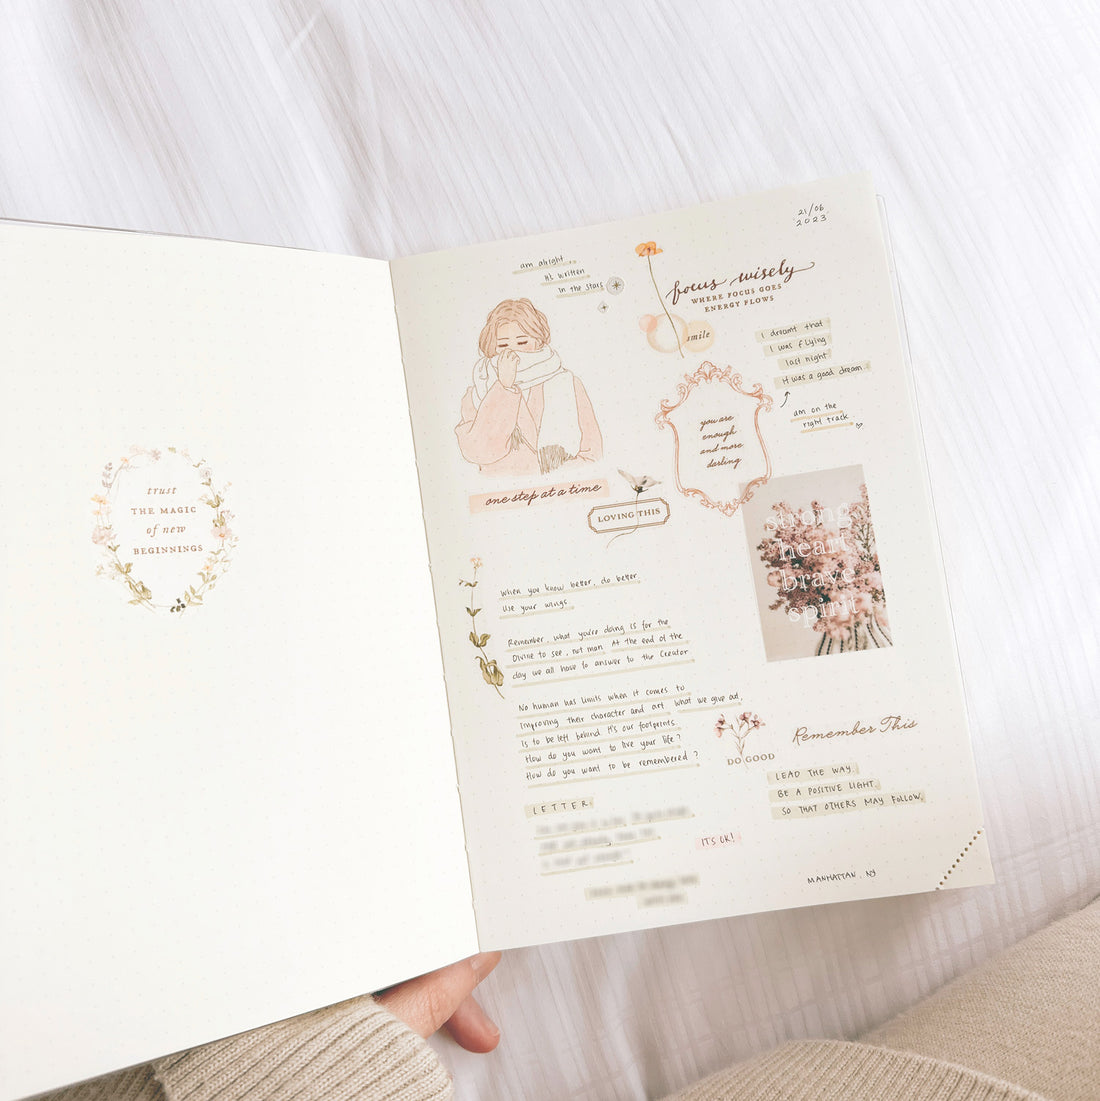 trust
THE MAGIC
of new
BEGINNINGS
21/06
2023
am alright,
it's written
in the stars
focus wisely
WHERE FOCUS GOES
ENERGY FLOWS
smile
I dreamt that
I was flying
last night
It was a good dream.
am on the
right track
you are
enough
and more
darling
one step at a time
LOVING THIS
strong
heart
brave
spirit
When you know better, do better.
Use your wings
Remember, what you're doing is for the
Divine to see, not man. At the end of the
day we all have to answer to the Creator.
No human has limits when it comes to
improving their character and art. What we give out,
is to be left behind. It's our footprints.
How do you want to live your life?
How do you want to be remembered?
DO GOOD
Remember This
LEAD THE WAY.
BE A POSITIVE LIGHT,
SO THAT OTHERS MAY FOLLOW.
LETTER:
IT'S OK!
MANHATTAN, NY